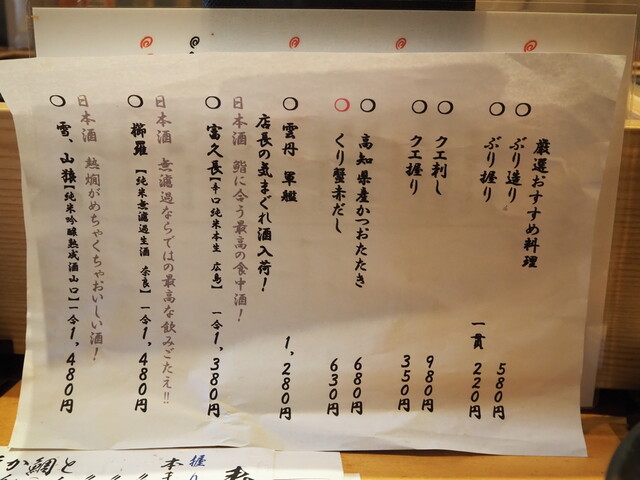 厳選おすすめ料理
○ ぶり造り 580円
○ ぶり握り 一貫 220円
○ クエ刺し 980円
○ クエ握り 350円
○ 高知県産かつおたたき 680円
○ くり蟹赤だし 630円
○ 雲丹 軍艦 1,280円
店長の気まぐれ酒入荷!
日本酒 鮨に合う最高の食中酒!
○ 富久長【辛口純米本生 広島】 一合1,380円
日本酒 無濾過ならではの最高な飲みごたえ!!
○ 櫛羅【純米無濾過生酒 奈良】 一合1,480円
日本酒 熱燗がめちゃくちゃおいしい酒!
○ 雪、山猿【純米吟醸熟成酒山口】一合1,480円
握り
本
鯛と
か